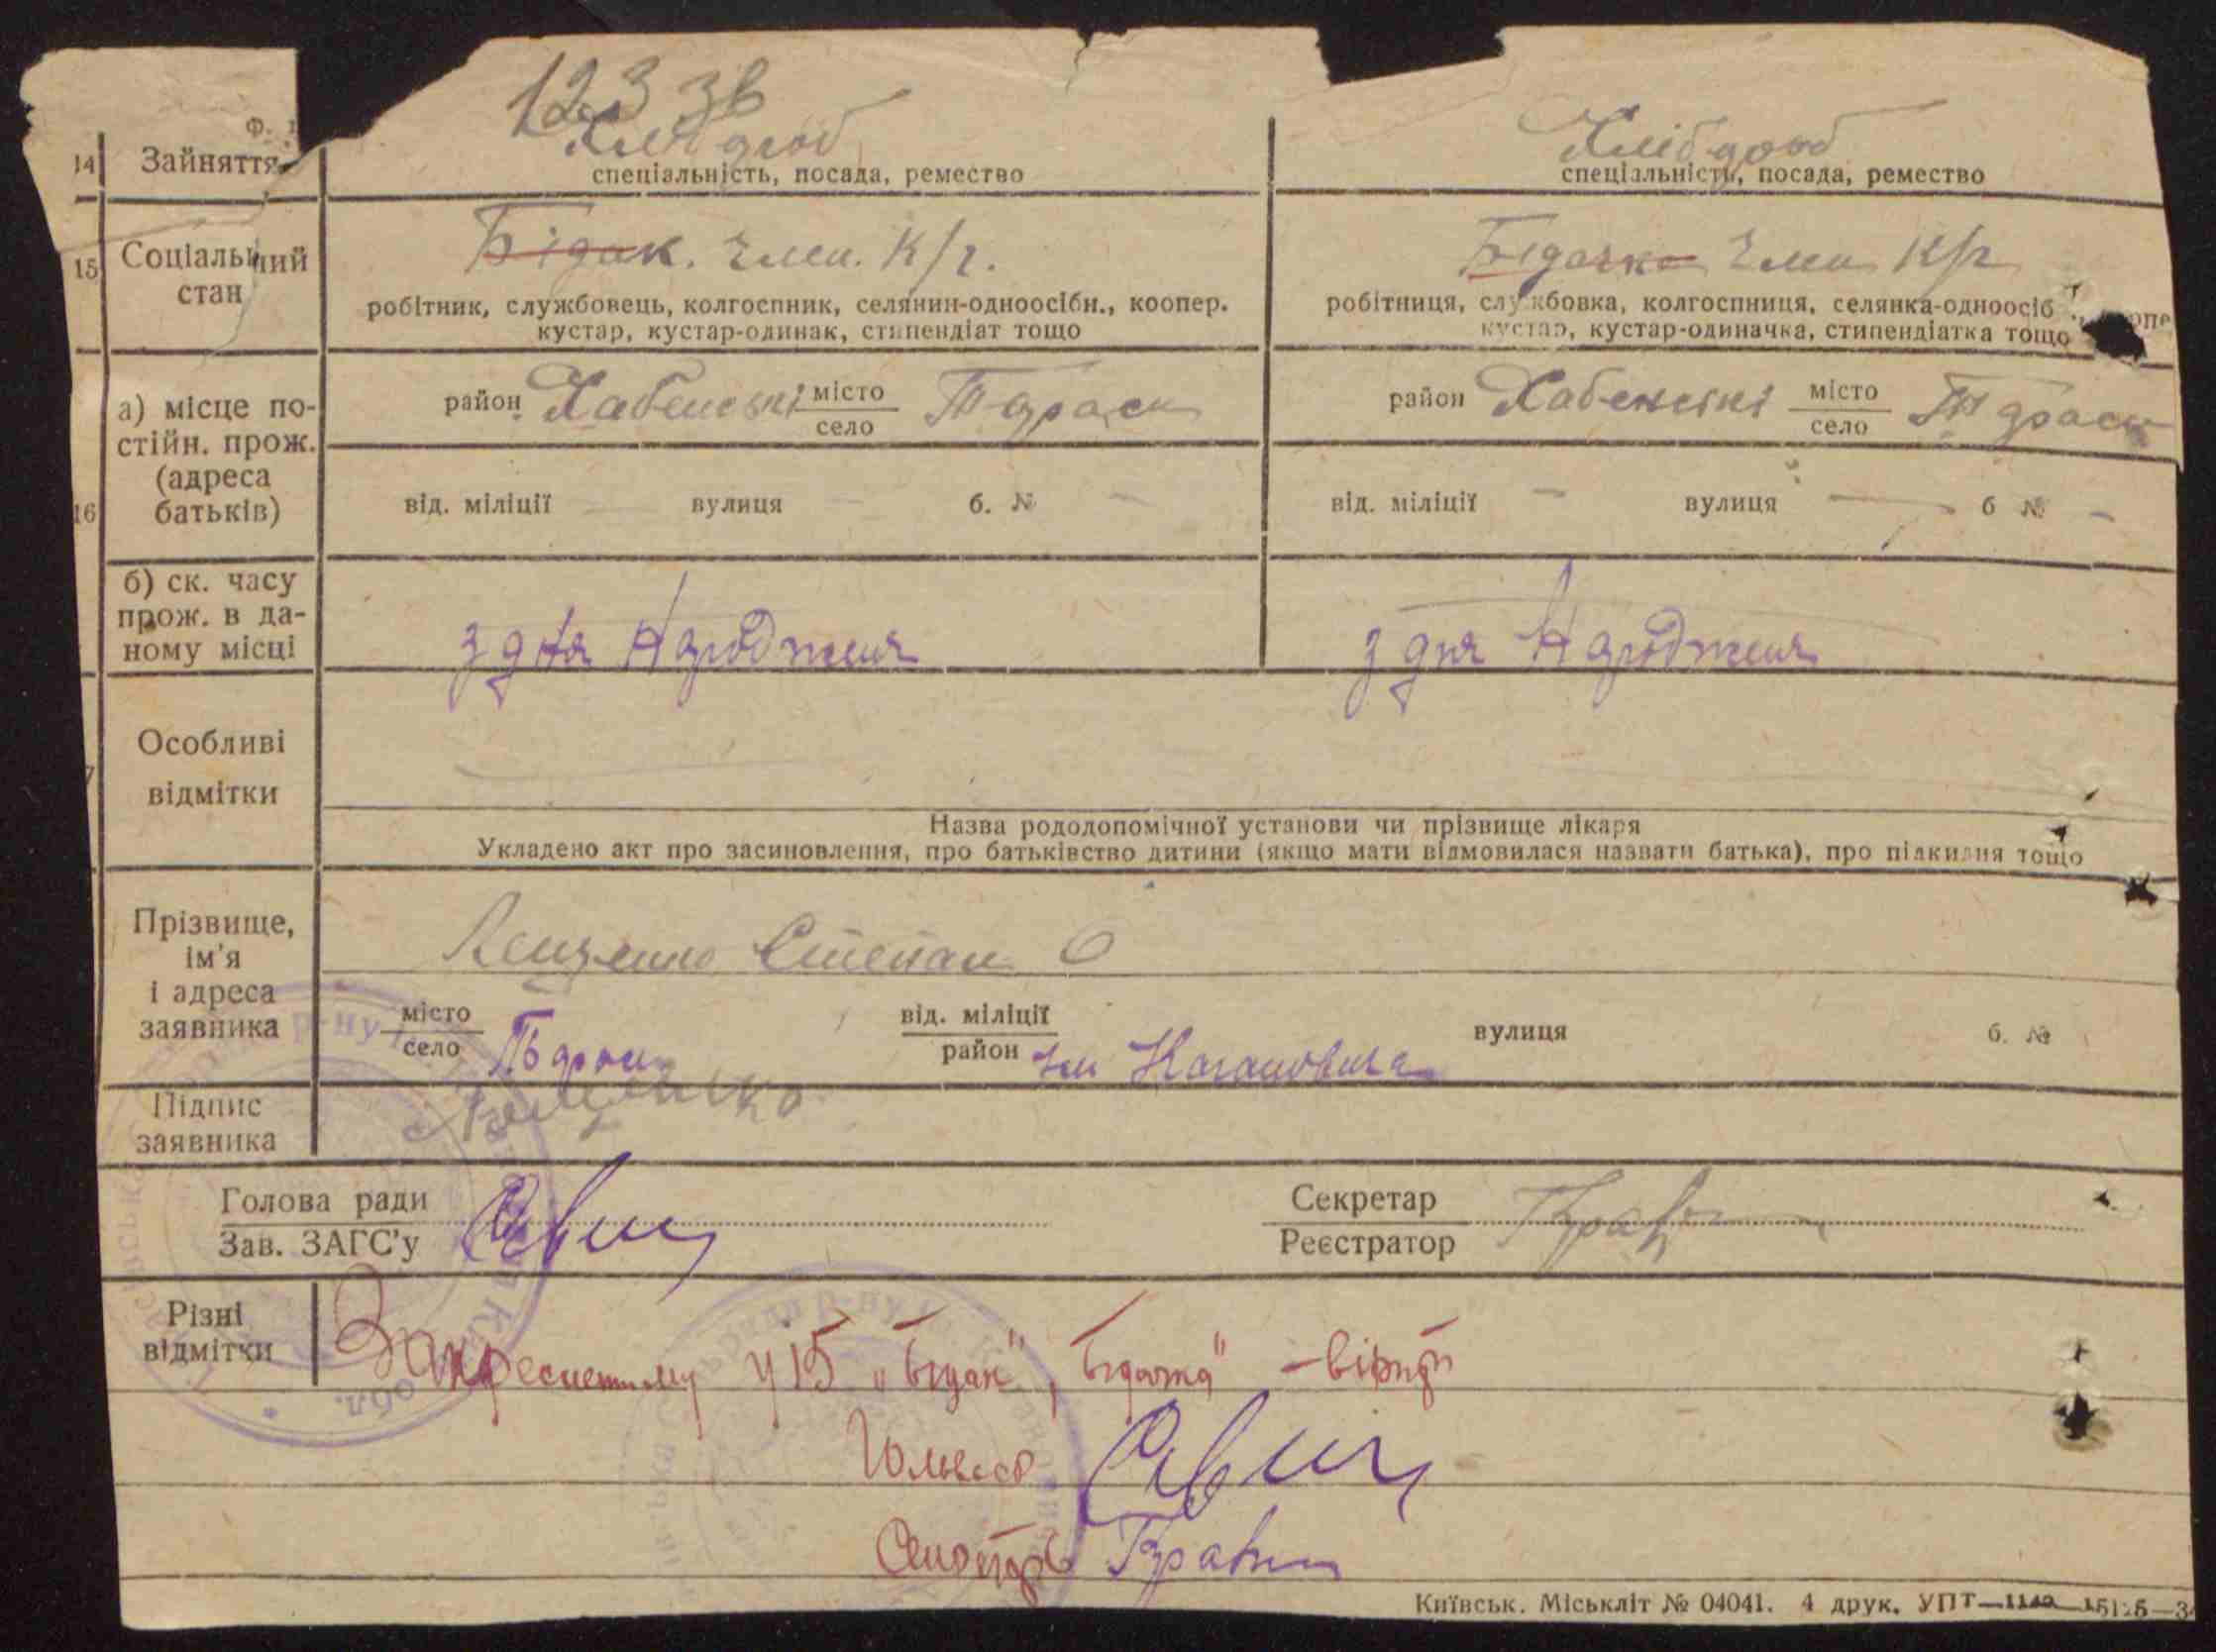 123 зв
Ф. 1
14 Зайняття Хлібороб Хлібороб
спеціальність, посада, ремество спеціальність, посада, ремество
15 Соціальний стан Бідак. Член К/г. Бідачка Член К/г
робітник, службовець, колгоспник, селянин-одноосібн., коопер. робітниця, службовка, колгоспниця, селянка-одноосіб
кустар, кустар-одинак, стипендіат тощо кустар, кустар-одиначка, стипендіатка тощо
а) місце по-
стійн. прож.
(адреса
батьків)
район Хабенські місто район Хабенські місто
село село
16 від. міліції — вулиця — б. № — від. міліції — вулиця — б № —
б) ск. часу
прож. в да-
ному місці
з дня Народженя з дня Народженя
Особливі
відмітки
Назва рододопомічної установи чи прізвище лікаря
Укладено акт про засиновлення, про батьківство дитини (якщо мати відмовилася назвати батька), про підкидня тощо
Прізвище,
ім'я
і адреса
заявника
Степан
місто від. міліції вулиця б. №
село район Ім Кагановича
Підпис
заявника
Голова ради Секретар
Зав. ЗАГС'у Реєстратор
Різні
відмітки
Закресленому у 15 „бідак", бідачка" –
Голова
Секретар
Київськ. Міськліт № 04041. 4 друк. УПТ